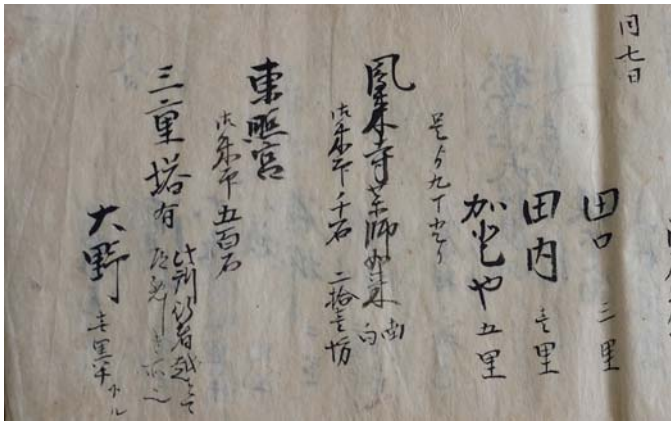 同七日
田口 三里
田内 壱里
加しや 五里
是より九丁登り
鳳来寺薬師如来 南向
御朱印千石 二拾壱坊
東照宮
御朱印五百石
三重塔有
此所行者越とて
大野 壱里半